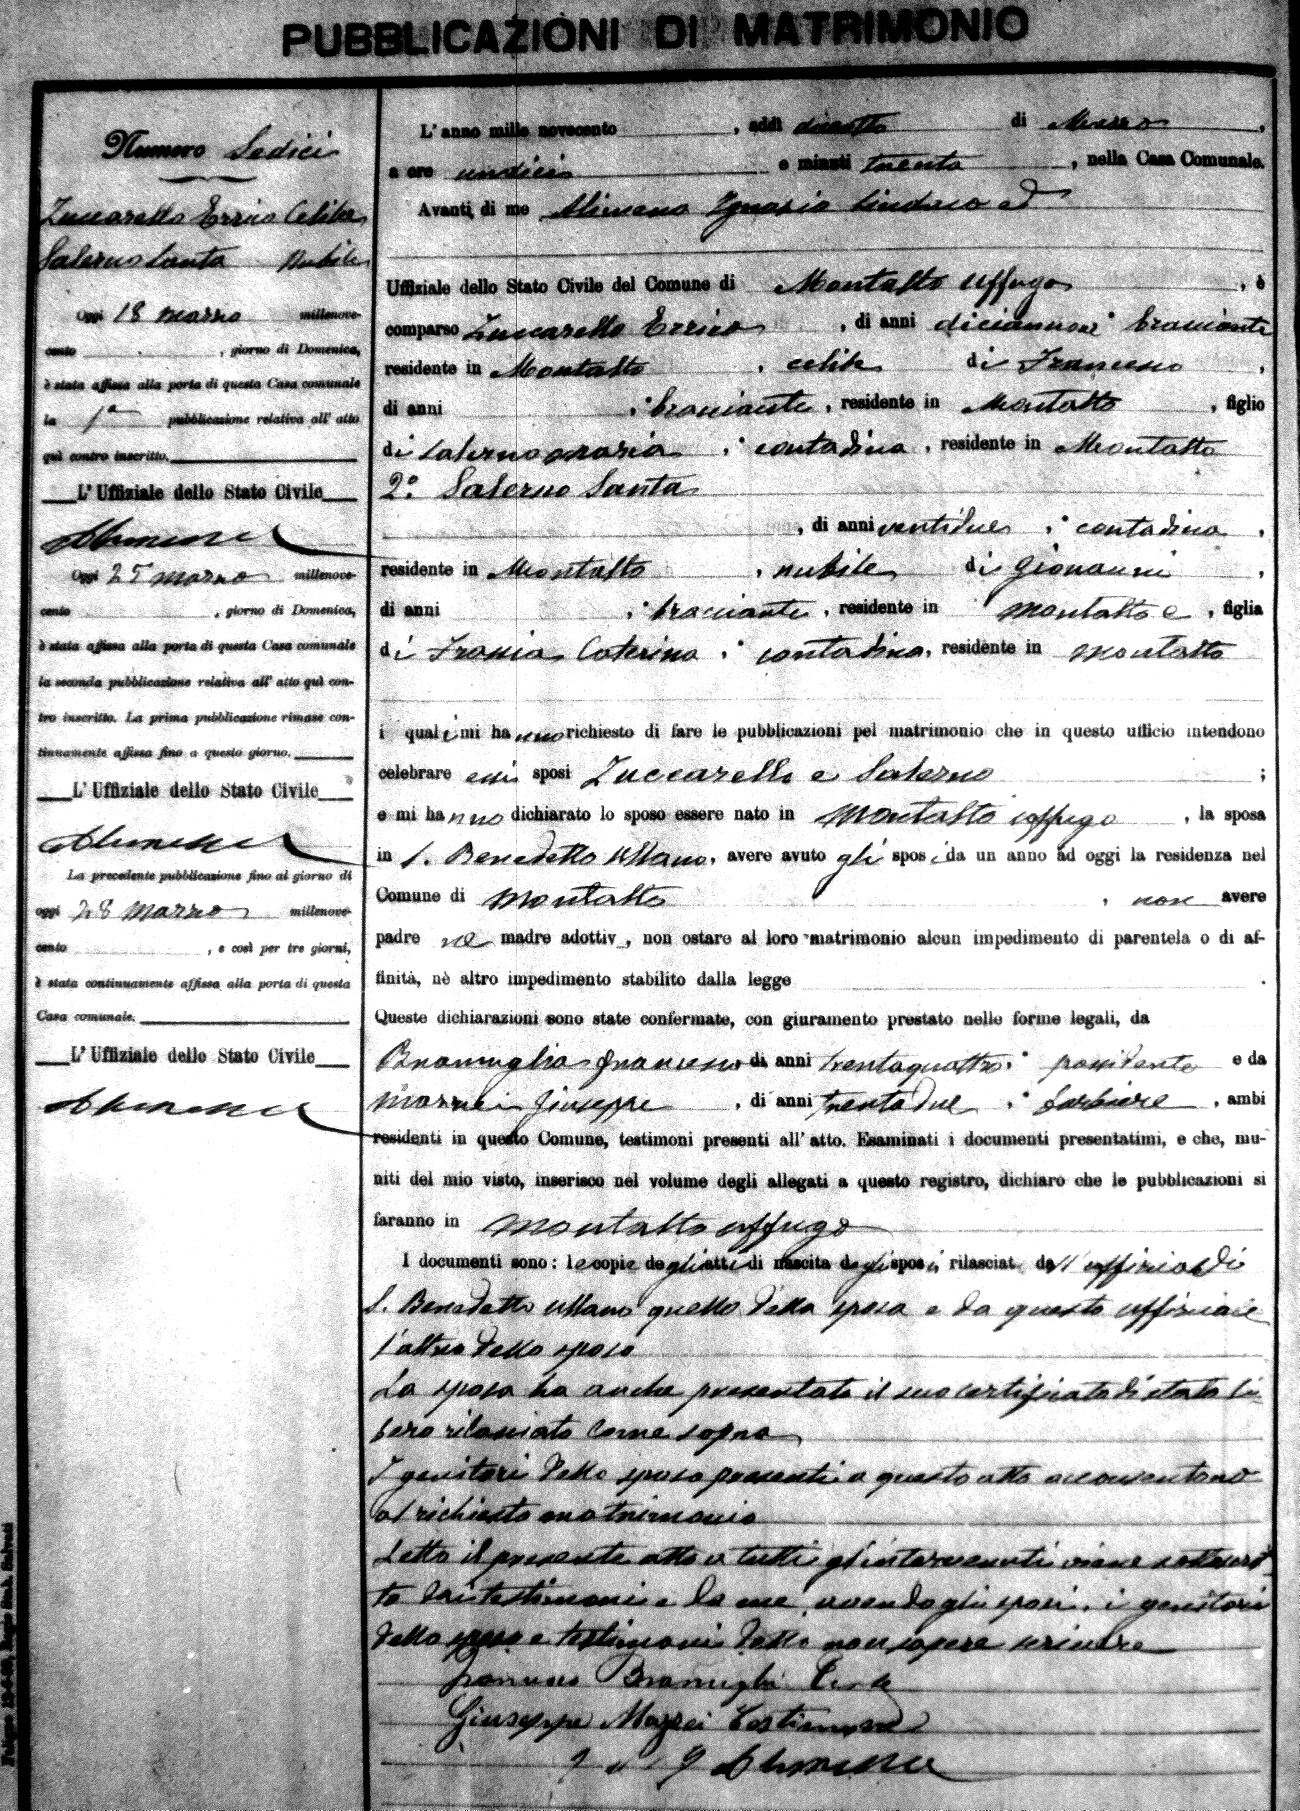 PUBBLICAZIONI DI MATRIMONIO
Numero Sedici
Zuccarello Errico Celibe
Salerno Santa Nubile
Oggi 18 marzo millenove-
cento , giorno di Domenica,
è stata affissa alla porta di questa Casa comunale
la 1a pubblicazione relativa all' atto
quì contro inscritto.
L' Uffiziale dello Stato Civile
Oggi 25 marzo millenove-
cento , giorno di Domenica,
è stata affissa alla porta di questa Casa comunale
la seconda pubblicazione relativa all' atto quì con-
tro inscritto. La prima pubblicazione rimase con-
tinuamente affissa fino a questo giorno.
L' Uffiziale dello Stato Civile
La precedente pubblicazione fino al giorno di
oggi 28 marzo millenove-
cento , e così per tre giorni,
è stata continuamente affissa alla porta di questa
Casa comunale.
L' Uffiziale dello Stato Civile
L' anno mille novecento , addì diciotto di Marzo ,
a ore undici e minuti trenta , nella Casa Comunale.
Avanti di me Alimena Ignazio Sindaco ed
Uffiziale dello Stato Civile del Comune di Montalto Uffugo , è
comparso Zuccarello Errico , di anni diciannove bracciante
residente in Montalto , celibe di Francesco ,
di anni , bracciante , residente in Montalto , figlio
di Salerno Maria , contadina , residente in Montalto
2° Salerno Santa
, di anni ventidue , contadina ,
residente in Montalto , nubile di Giovanni ,
di anni , bracciante , residente in Montalto e , figlia
di Caterina , contadina , residente in Montalto
i quali mi hanno richiesto di fare le pubblicazioni pel matrimonio che in questo ufficio intendono
celebrare essi sposi Zuccarello e Salerno ;
e mi hanno dichiarato lo sposo essere nato in Montalto Uffugo , la sposa
in S. Benedetto Ullano, avere avuto gli sposi da un anno ad oggi la residenza nel
Comune di Montalto , non avere
padre nè madre adottiv , non ostare al loro matrimonio alcun impedimento di parentela o di af-
finità, nè altro impedimento stabilito dalla legge .
Queste dichiarazioni sono state confermate, con giuramento prestato nelle forme legali, da
Francesco di anni trentaquattro, possidente e da
Mazzei Giuseppe , di anni trentadue , barbiere , ambi
residenti in questo Comune, testimoni presenti all' atto. Esaminati i documenti presentatimi, e che, mu-
niti del mio visto, inserisco nel volume degli allegati a questo registro, dichiaro che le pubblicazioni si
faranno in Montalto Uffugo
I documenti sono: le copie degli atti di nascita degli sposi rilasciat dall'uffizio di
S. Benedetto Ullano quello della sposa e da questo uffizio
l'altro dello sposo
La sposa ha anche presentato il suo certificato di stato li-
bero rilasciato come sopra
I genitori dello sposo presenti a questo atto acconsentono
al richiesto matrimonio
Letto il presente atto a tutti gl'intervenuti viene sottoscrit-
to dai testimoni e da me, avendo gli sposi, i genitori
dello sposo e testimoni detto non sapere scrivere
Giuseppe Mazzei Testimone